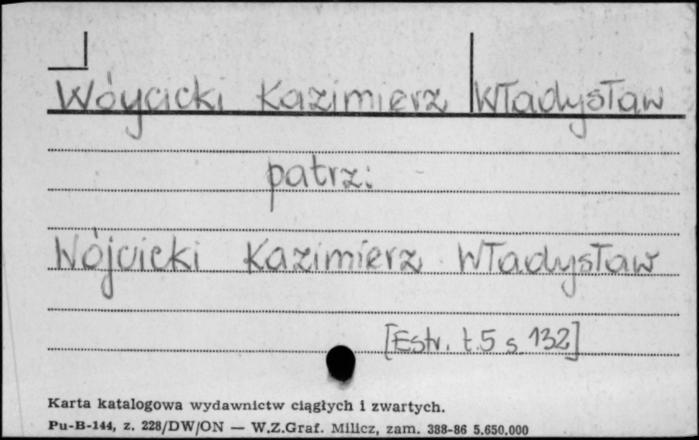 Wóycicki Kazimierz Władysław
patrz:
Wójcicki Kazimierz Władysław
[Estr. t.5 s. 132]
Karta katalogowa wydawnictw ciągłych i zwartych.
Pu-B-144, z. 228/DW/ON — W.Z.Graf. Milicz, zam. 388-86 5.650.000